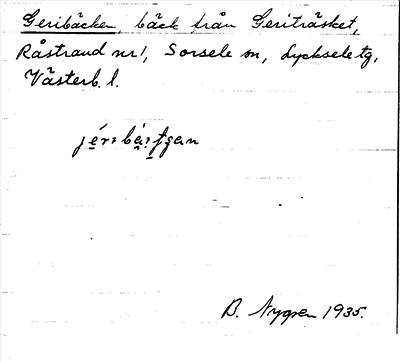 Geribäcken, bäck från Geriträsket,
Råstrand nr 1, Sorsele sn, Lycksele tg,
Västerb. l.
B. Nygren 1935.